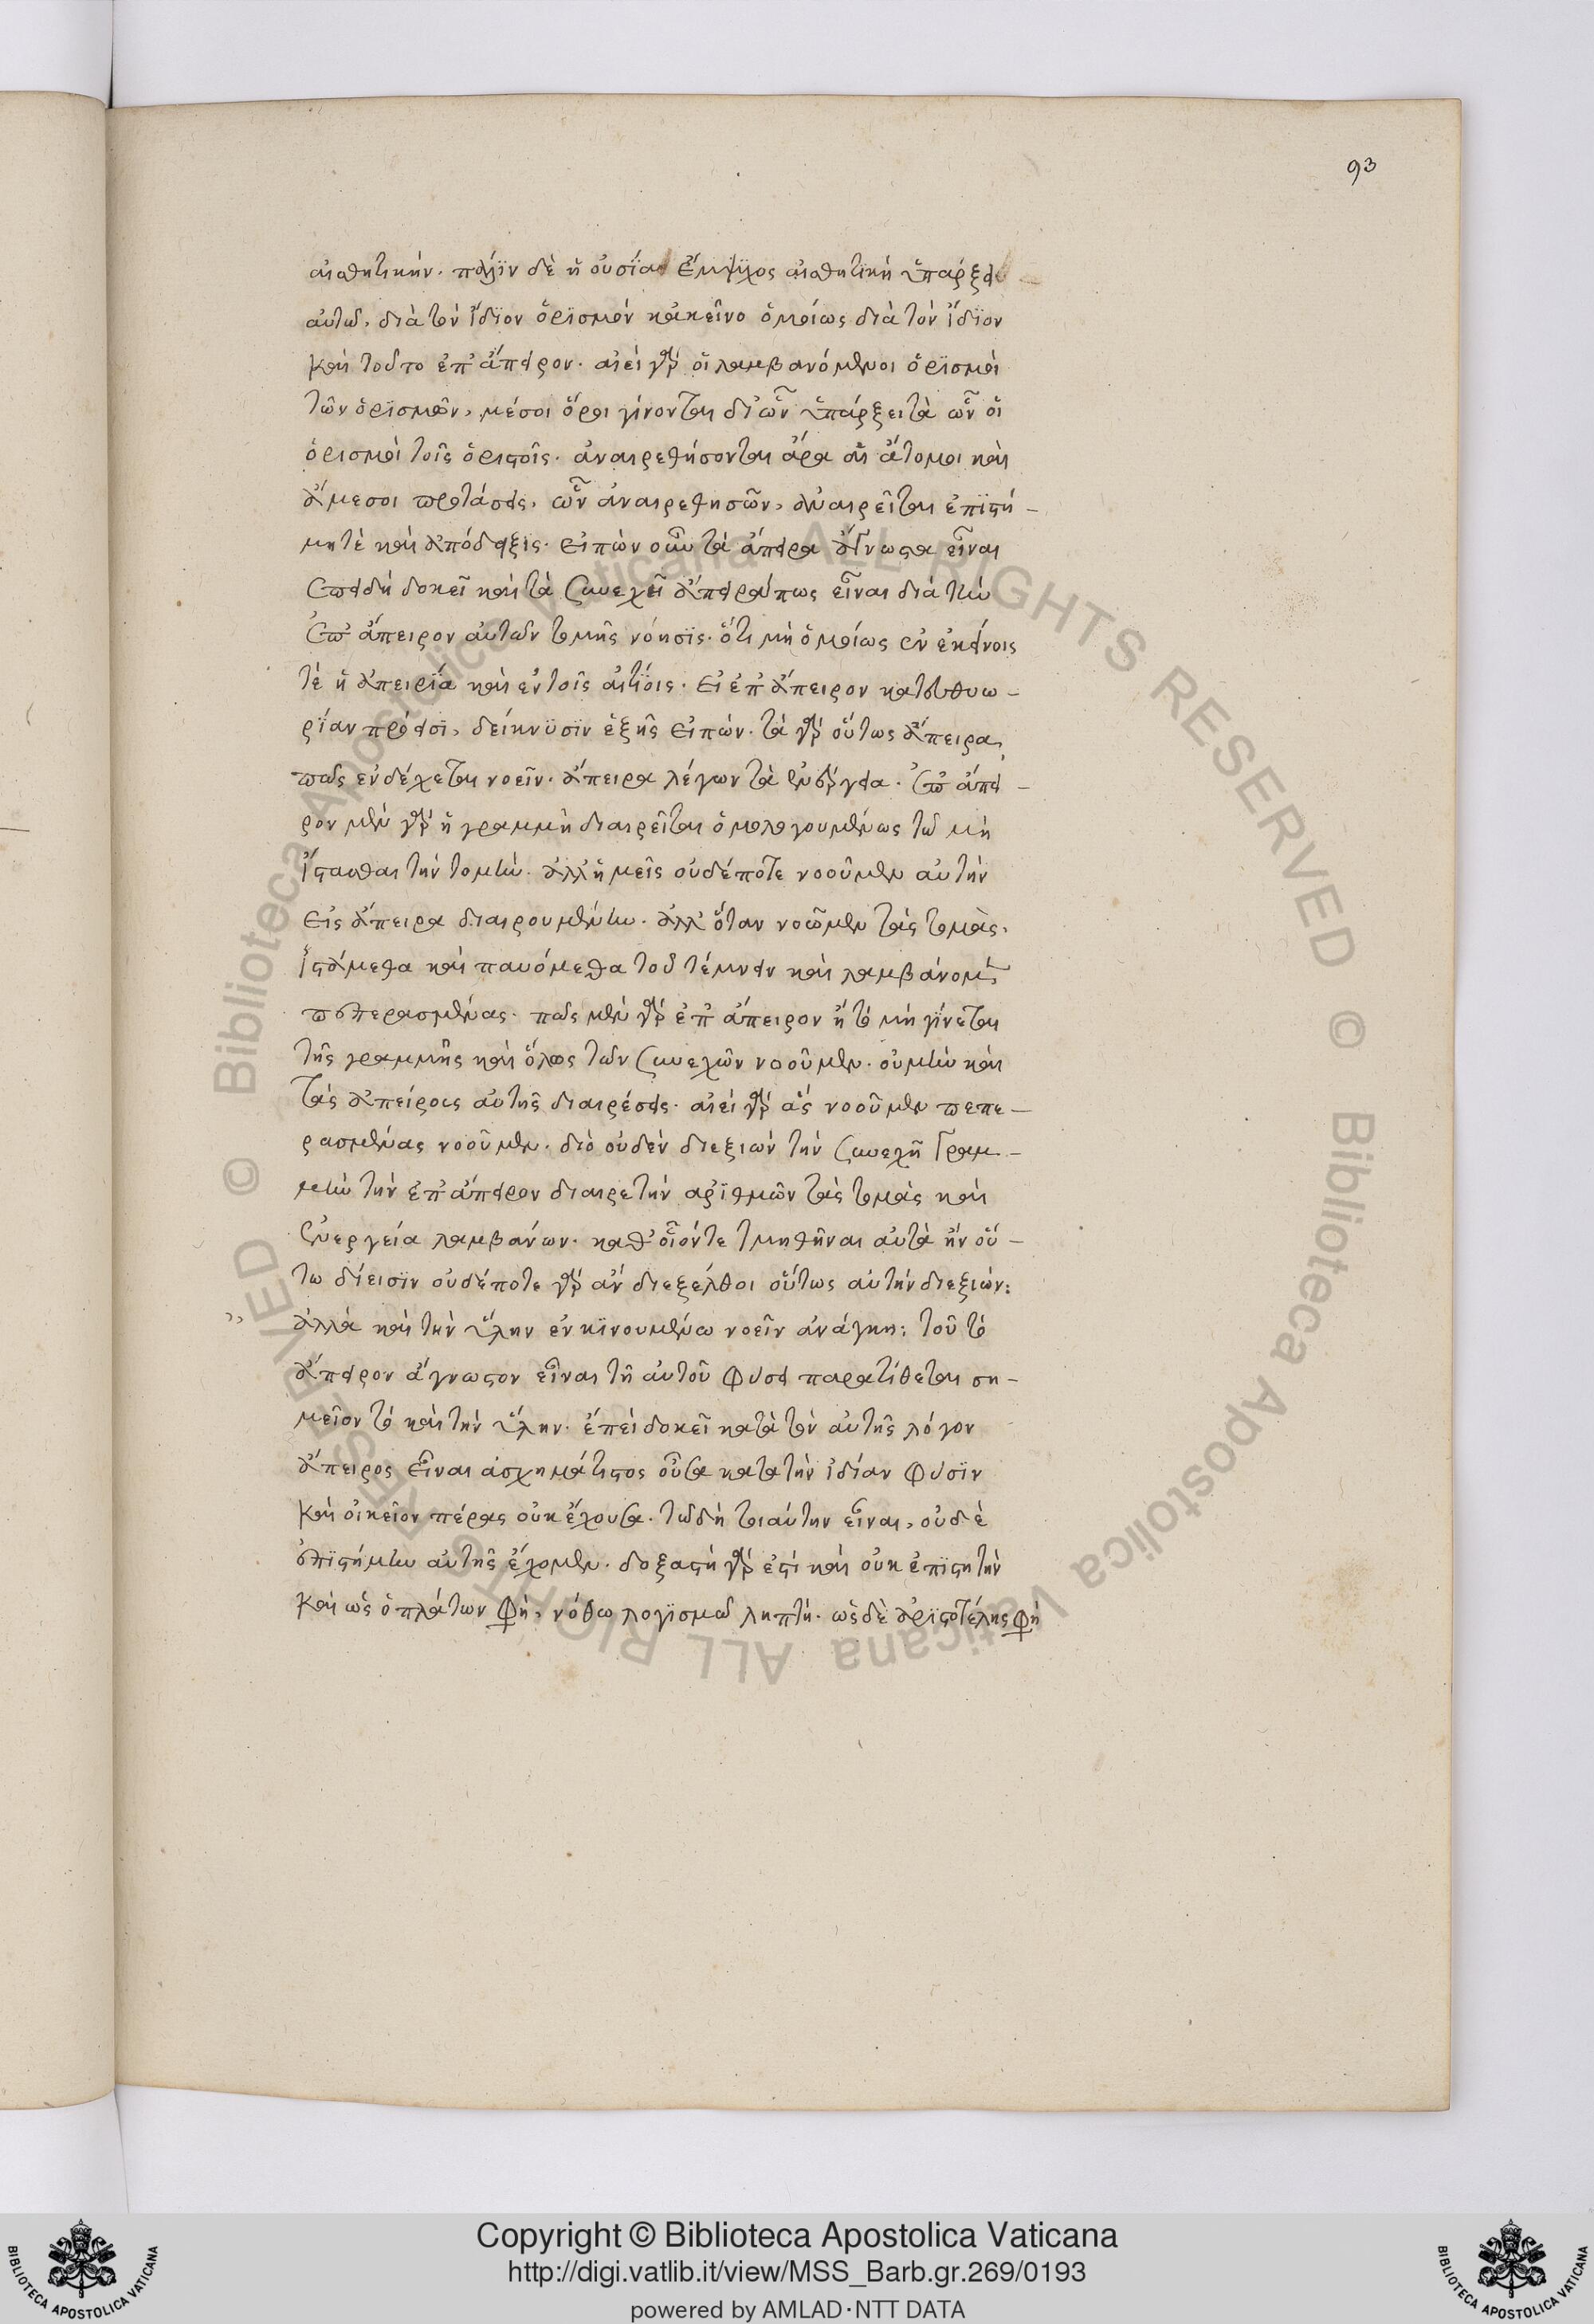 93
αἰσθητικήν. πάλϊν δὲ ἡ οὐσία ἔμψϋχος αἰσθητϊκὴ ὑπάρξει
αὐτῶ, διὰ τὸν ἴδϊον ὁρϊσμόν κἀκεῖνο ὁμοίως διὰ τὸν ἴδϊον
καὶ τοῦτο ἐπ' ἄπειρον. αἰεὶ γὰρ οἱ λαμβανόμενοι ὁρϊσμοὶ
τῶν ὁρϊσμῶν, μέσοι ὅροι γίνονται δι' ὧν ὑπάρξει τὰ ὧν οἱ
ὁρισμοὶ τοῖς ὁριστοῖς. ἀναιρεθήσονται ἄρα αἱ ἄτομοι καὶ
ἄμεσοι προτάσεις, ὧν ἀναιρεθησῶν, ἀναιρεῖται ἐπϊστή-
μη τὲ καὶ ἀπόδειξις. εἰπὼν οὖν τὰ ἄπειρα ἄγνωστα εἶναι
ἐπειδὴ δοκεῖ καὶ τὰ συνεχεῖ ἄπειρά πως εἶναι διὰ τὴν
ἐπ' ἄπειρον αὐτῶν τομῆς νόησϊς. ὅτι μὴ ὁμοίως ἐν ἐκείνοις
τὲ ἡ ἀπειρία καὶ ἐν τοῖς αἰτίοις. εἰ ἐπ' ἄπειρον κατευθυω-
ρίαν πρόεισϊ, δείκνϋσϊν ἑξῆς εἰπών. τὰ γὰρ οὕτως ἄπειρα,
πῶς ἐνδέχεται νοεῖν. ἄπειρα λέγων τὰ ἐνεργεία. ἐπ' ἄπει-
ρον μὲν γὰρ ἡ γραμμὴ διαιρεῖται ὁμολογουμένως τῶ μὴ
ἵστασθαι τὴν τομὴν. ἀλλ' ἡμεῖς οὐδέποτε νοοῦμεν αὐτὴν
εἰς ἄπειρα διαιρουμένην. ἀλλ' ὅταν νοῶμεν τὰς τομὰς,
ἱστάμεθα καὶ παυόμεθα τοῦ τέμνειν καὶ λαμβάνομεν
πεπερασμένας. πῶς μὲν γὰρ ἐπ' ἄπειρον ἡ τομὴ γίνεται
τῆς γραμμῆς καὶ ὅλως τῶν συνεχῶν νοοῦμεν. οὐ μὴν καὶ
τὰς ἀπείρους αὐτῆς διαιρέσεις. αἰεὶ γὰρ ἃς νοοῦμεν πεπε-
ρασμένας νοοῦμεν. διὸ οὐδὲν διεξιὼν τὴν συνεχῆ γραμ-
μὴν τὴν ἐπ' ἄπειρον διαιρετὴν ἀρϊθμῶν τὰς τομὰς καὶ
ἐνεργεία λαμβάνων. καθ' οἷόντε τμηθῆναι αὐτὰ ἢν οὕ-
τω δίεισϊν οὐδέποτε γὰρ ἂν διεξέλθοι οὕτως αὐτὴν διεξιών:
" ἀλλὰ καὶ τὴν ὕλην ἐν κϊνουμένω νοεῖν ἀνάγκη: τοῦ τὸ
ἄπειρον ἄγνωστον εἶναι τῆ αὐτοῦ φύσει παρατίθεται ση-
μεῖον τὸ καὶ τὴν ὕλην. ἐπεὶ δοκεῖ κατὰ τὸν αὐτῆς λόγον
ἄπειρος εἶναι ἀσχημάτιστος οὖσα κατὰ τὴν ἰδίαν φύσϊν
καὶ οἰκεῖον πέρας οὐκ ἔχουσα. τῶ δὴ τοιαύτην εἶναι, οὐδὲ
ἐπϊστήμην αὐτῆς ἔχομεν. δοξαστὴ γὰρ ἐστὶ καὶ οὐκ ἐπϊστητὴν
καὶ ὡς ὁ πλάτων φη, νόθω λογϊσμῶ ληπτὴ. ὡς δὲ ἀρϊστοτέλης φη
Copyright © Biblioteca Apostolica Vaticana
http://digi.vatlib.it/view/MSS_Barb.gr.269/0193
powered by AMLAD·NTT DATA